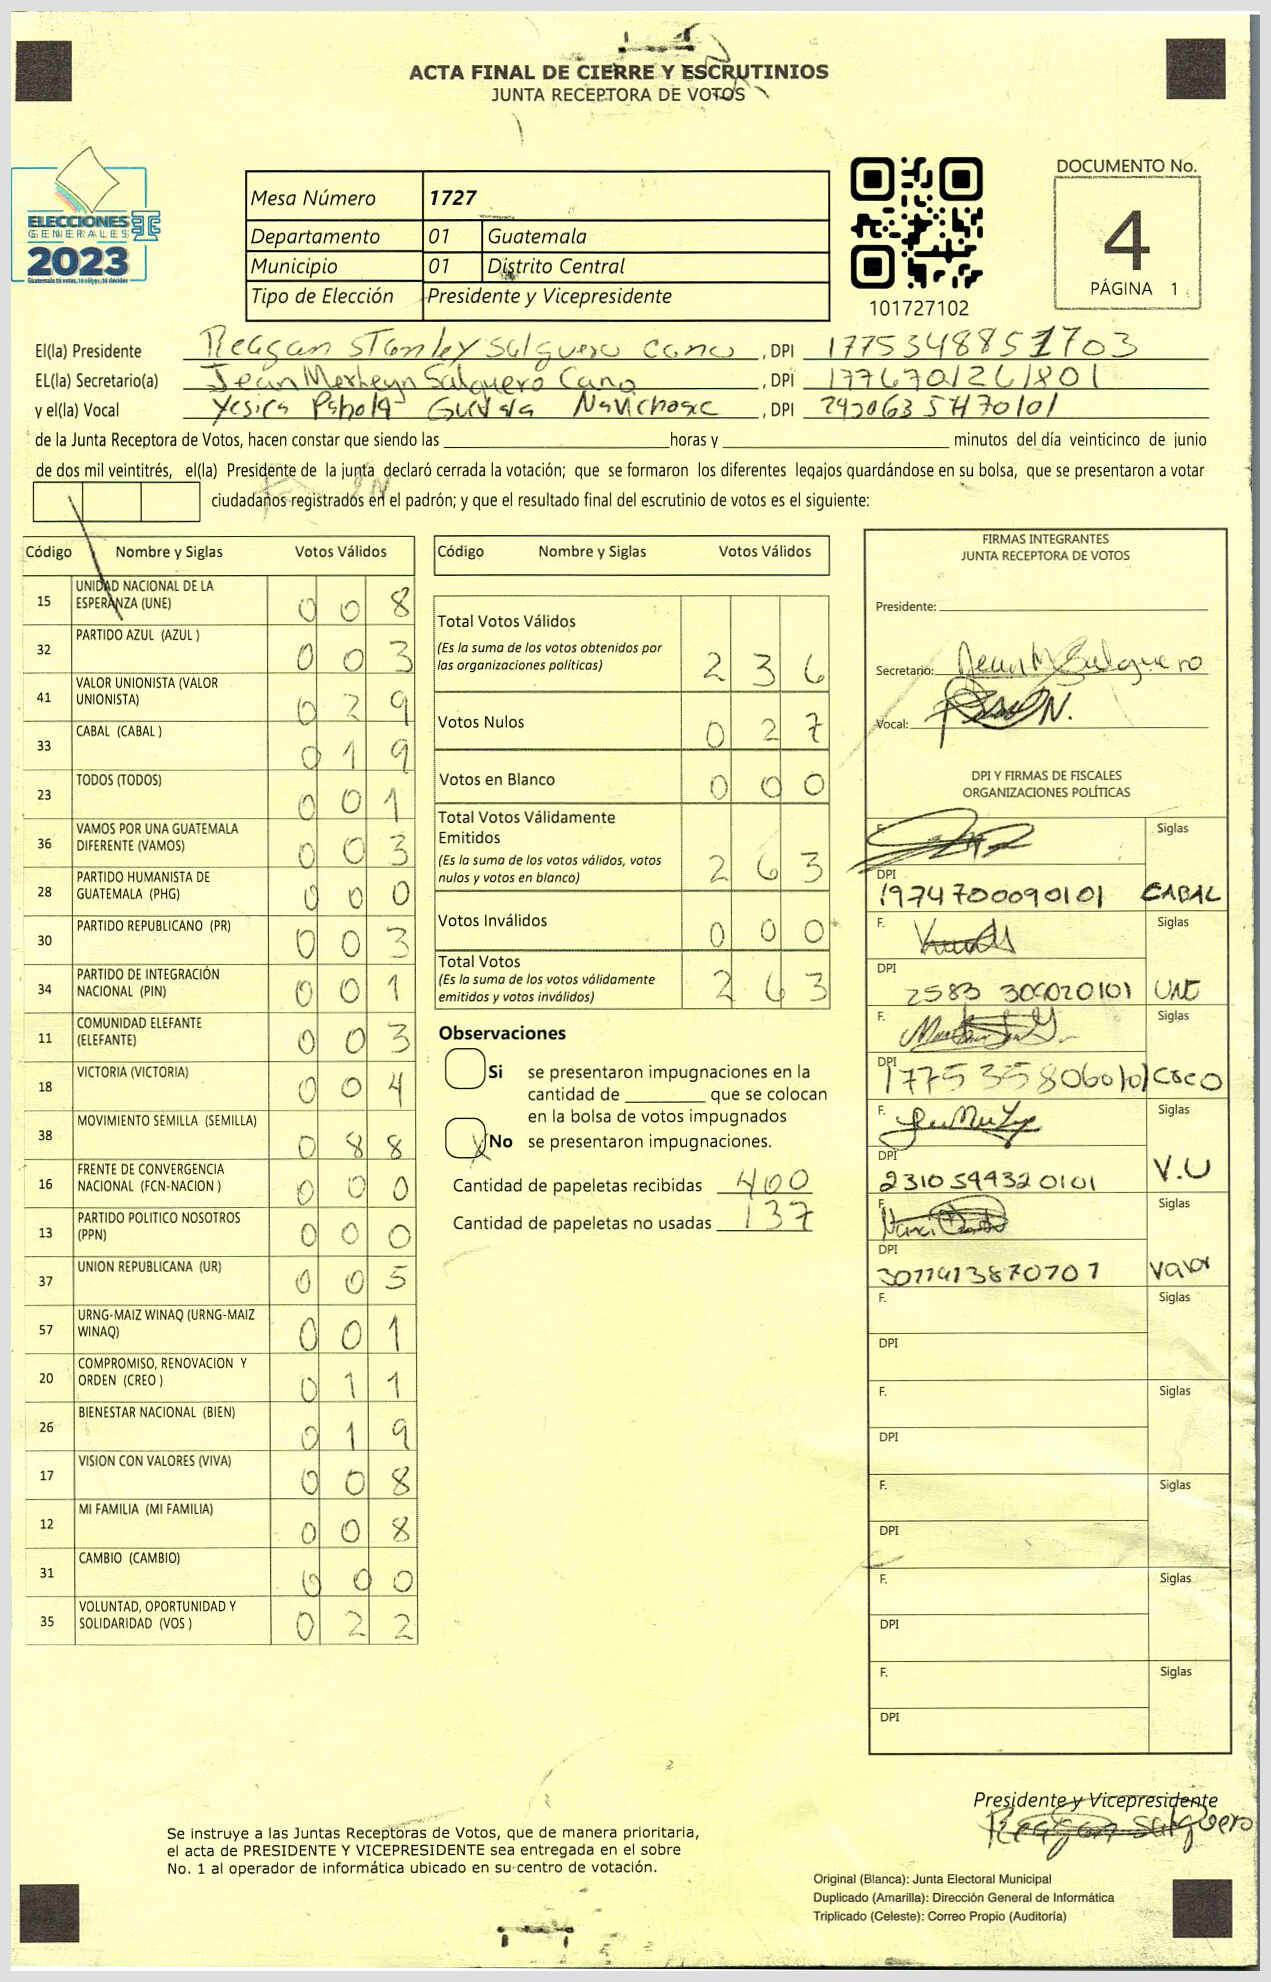 ACTA FINAL DE CIERRE Y ESCRUTINIOS
JUNTA RECEPTORA DE VOTOS
ELECCIONES
GENERALES
2023
Mesa Número 1727
Departamento 01 Guatemala
Municipio 01 Distrito Central
Tipo de Elección Presidente y Vicepresidente
101727102
DOCUMENTO No.
4
PÁGINA 1
El(la) Presidente Reagan Stanley Salguero Cano, DPI 1775348851703
EL(la) Secretario(a) Jean Merheyn Salguero Cano, DPI 1776701261801
y el(la) Vocal Yesica, DPI
de la Junta Receptora de Votos, hacen constar que siendo las horas y minutos del día veinticinco de junio
de dos mil veintitrés, el(la) Presidente de la junta declaró cerrada la votación; que se formaron los diferentes legajos guardándose en su bolsa, que se presentaron a votar
ciudadanos registrados en el padrón; y que el resultado final del escrutinio de votos es el siguiente:
Código Nombre y Siglas Votos Válidos
15 UNIDAD NACIONAL DE LA ESPERANZA (UNE) 0 0 8
32 PARTIDO AZUL (AZUL ) 0 0 3
41 VALOR UNIONISTA (VALOR UNIONISTA) 0 2 9
33 CABAL (CABAL ) 0 1 9
23 TODOS (TODOS) 0 0 1
36 VAMOS POR UNA GUATEMALA DIFERENTE (VAMOS) 0 0 3
28 PARTIDO HUMANISTA DE GUATEMALA (PHG) 0 0 0
30 PARTIDO REPUBLICANO (PR) 0 0 3
34 PARTIDO DE INTEGRACIÓN NACIONAL (PIN) 0 0 1
11 COMUNIDAD ELEFANTE (ELEFANTE) 0 0 3
18 VICTORIA (VICTORIA) 0 0 4
38 MOVIMIENTO SEMILLA (SEMILLA) 0 8 8
16 FRENTE DE CONVERGENCIA NACIONAL (FCN-NACION ) 0 0 0
13 PARTIDO POLITICO NOSOTROS (PPN) 0 0 0
37 UNION REPUBLICANA (UR) 0 0 5
57 URNG-MAIZ WINAQ (URNG-MAIZ WINAQ) 0 0 1
20 COMPROMISO, RENOVACION Y ORDEN (CREO ) 0 1 1
26 BIENESTAR NACIONAL (BIEN) 0 1 9
17 VISION CON VALORES (VIVA) 0 0 8
12 MI FAMILIA (MI FAMILIA) 0 0 8
31 CAMBIO (CAMBIO) 0 0 0
35 VOLUNTAD, OPORTUNIDAD Y SOLIDARIDAD (VOS ) 0 2 2
Código Nombre y Siglas Votos Válidos
Total Votos Válidos 2 3 6
(Es la suma de los votos obtenidos por
las organizaciones políticas)
Votos Nulos 0 2 7
Votos en Blanco 0 0 0
Total Votos Válidamente
Emitidos 2 6 3
(Es la suma de los votos válidos, votos
nulos y votos en blanco)
Votos Inválidos 0 0 0
Total Votos 2 6 3
(Es la suma de los votos válidamente
emitidos y votos inválidos)
Observaciones
Si se presentaron impugnaciones en la
cantidad de que se colocan
en la bolsa de votos impugnados
No se presentaron impugnaciones.
Cantidad de papeletas recibidas 400
Cantidad de papeletas no usadas 137
FIRMAS INTEGRANTES
JUNTA RECEPTORA DE VOTOS
Presidente:
Secretario: Jean M Salguero
Vocal:
DPI Y FIRMAS DE FISCALES
ORGANIZACIONES POLÍTICAS
F. Siglas
DPI
1974700090101 CABAL
F. Siglas
DPI
2583 UNE
F. Siglas
DPI
1775358060101 CREO
F. Siglas
DPI
2310599320101 V.U
F. Siglas
DPI
Valor
F. Siglas
DPI
F. Siglas
DPI
F. Siglas
DPI
F. Siglas
DPI
F. Siglas
DPI
Presidente y Vicepresidente
Reagan Salguero
Se instruye a las Juntas Receptoras de Votos, que de manera prioritaria,
el acta de PRESIDENTE Y VICEPRESIDENTE sea entregada en el sobre
No. 1 al operador de informática ubicado en su centro de votación.
Original (Blanca): Junta Electoral Municipal
Duplicado (Amarilla): Dirección General de Informática
Triplicado (Celeste): Correo Propio (Auditoría)